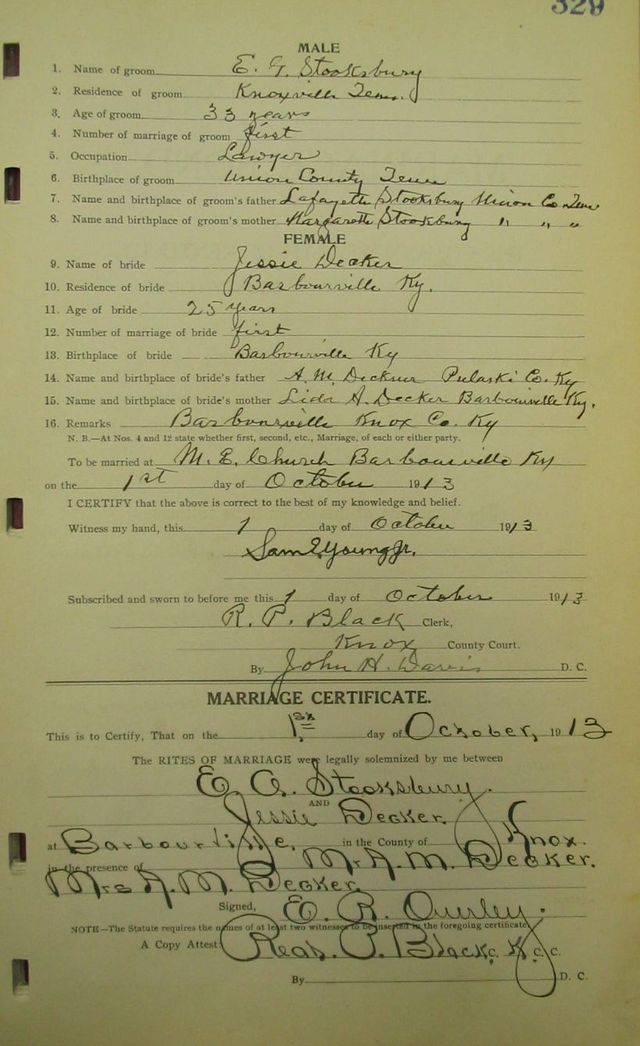 329
MALE
1. Name of groom E. G. Stooksbury
2. Residence of groom Knoxville Tenn.
3. Age of groom 33 years
4. Number of marriage of groom first
5. Occupation Lawyer
6. Birthplace of groom Union County Tenn
7. Name and birthplace of groom's father Lafayette Stooksbury Union Co Tenn
8. Name and birthplace of groom's mother Margarett Stooksbury " " "
FEMALE
9. Name of bride Jessie Decker
10. Residence of bride Barbourville Ky.
11. Age of bride 25 years
12. Number of marriage of bride first
13. Birthplace of bride Barbourville Ky
14. Name and birthplace of bride's father A. M. Pulaski Co. Ky
15. Name and birthplace of bride's mother Lida A. Decker Barbourville Ky.
16. Remarks Barbourville Knox Co. Ky
N. B.—At Nos. 4 and 12 state whether first, second, etc., Marriage, of each or either party.
To be married at M. E. Church Barbourville Ky
on the 1st day of October 1913
I CERTIFY that the above is correct to the best of my knowledge and belief.
Witness my hand, this 1 day of October 1913
Sam E. Young Jr.
Subscribed and sworn to before me this 1 day of October 1913
R. P. Black Clerk,
Knox County Court.
By John H. Davis D. C.
MARRIAGE CERTIFICATE.
This is to Certify, That on the 1st day of October, 1913
The RITES OF MARRIAGE were legally solemnized by me between
E. G. Stooksbury.
AND
Jessie Decker.
at Barbourville, in the County of Knox.
in the presence of Mr A. M. Decker.
Mrs A. M. Decker.
Signed, E. R.
NOTE—The Statute requires the names of at least two witnesses to be inserted in the foregoing certificate
A Copy Attest: P. Black, C. K. C. C.
By D. C.